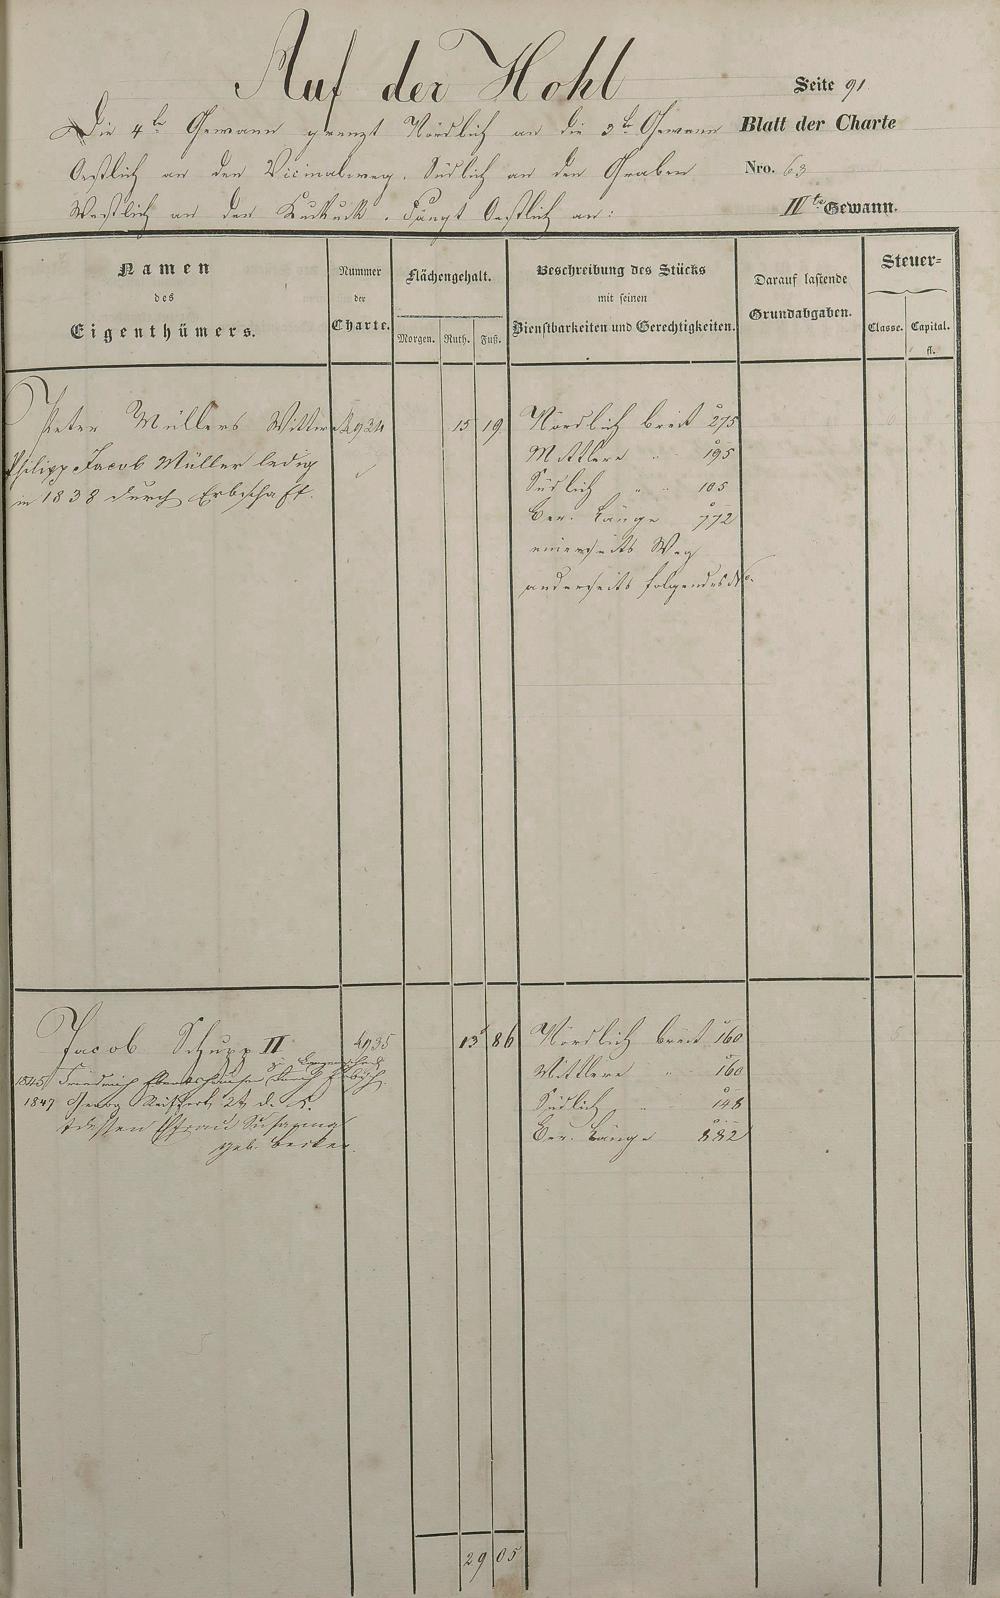 Auf der Hohl
Seite 91
Die 4te Gewann grenzt Nördlich an die 3te Gewann
Blatt der Charte
Oestlich an den Vicinalweg. Südlich an den Graben
Nro. 63
Westlich an den Kukuck. Fängt Oestlich an:
IVte Gewann.
Namen
des
Eigenthümers.
Nummer
der
Charte.
Flächengehalt.
Morgen. Ruth. Fuß.
Beschreibung des Stücks
mit seinen
Dienstbarkeiten und Gerechtigkeiten.
Darauf lastende
Grundabgaben.
Steuer-
Classe. Capital.
fl.
Peter Müllers Wittwe 4934 15 19 Nördlich breit 275
Philipp Jacob Müller ledig Mittlere " 195
in 1838 durch Erbschaft. Südlich " 105
Ber. Länge 772
einerseits Weg
anderseits folgendes No.
Jacob Schupp II 4935 13 86 Nördlich breit 160
1845 Friedrich durch Mittlere " 160
1847 Georg 2t d. K. Südlich " 148
Frau Susanna Ber. Länge 882
geb. Becker.
29 05